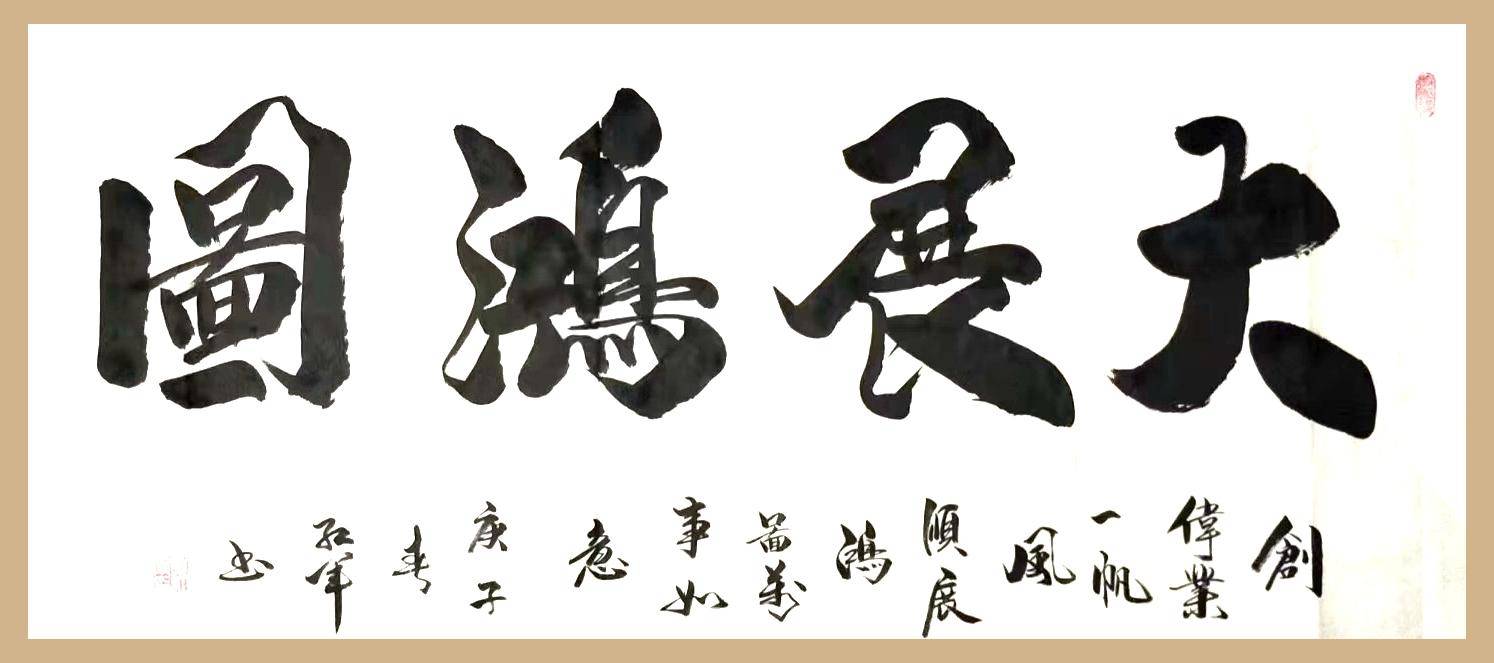 大展鴻圖
創
偉業
一帆
風
順展
鴻
啚萬
事如
意
庚子
春
红军
书